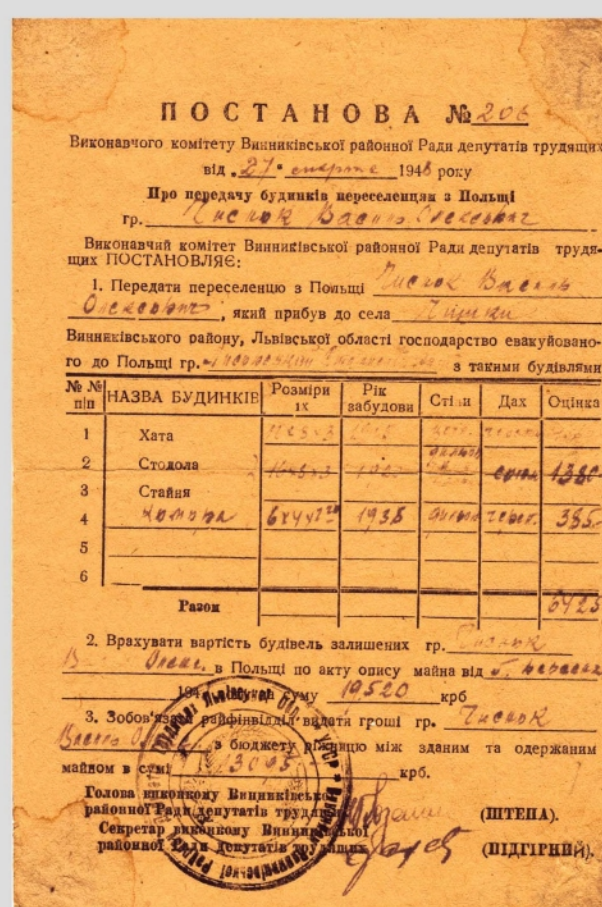 ПОСТАНОВА № 206
Виконавчого комітету Винниківської районної Ради депутатів трудящих
від „27“ 1948 року
Про передачу будинків переселенцям з Польщі
гр. Чиснок Василь Олексович
Виконавчий комітет Винниківської районної Ради депутатів трудя-
щих ПОСТАНОВЛЯЄ:
1. Передати переселенцю з Польщі Чиснок Василь
Олексович, який прибув до села
Винниківського району, Львівської області господарство евакуйовано-
го до Польщі гр. з такими будівлями
№ № п|п НАЗВА БУДИНКІВ Розміри їх Рік забудови Стіни Дах Оцінка
1 Хата
2 Стодола 1380
3 Стайня
4 Комора 1938 385
5
6
Разом 6425
2. Врахувати вартість будівель залишених гр. Чиснок
в Польщі по акту опису майна від
194 на суму 19,520 крб
3. Зобов'язати райфінвідділ видати гроші гр. Чиснок
з бюджету різницю між зданим та одержаним
майном в сумі 13095 крб.
Голова виконкому Винниківської
районної Ради депутатів трудящих (ШТЕПА).
Секретар виконкому Винниківської
районної Ради депутатів трудящих (ПІДГІРНИЙ).